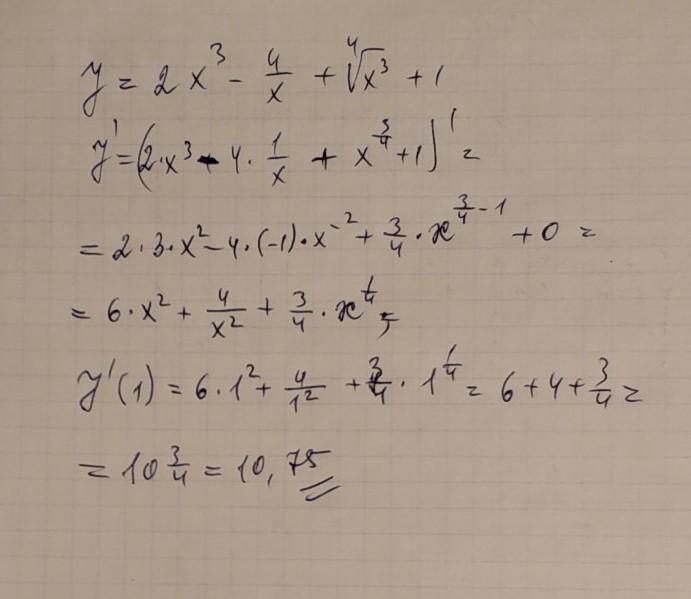 y = 2x³ - 4/x + ∜x³ + 1
y' = (2·x³ - 4·1/x + x^(3/4) + 1)' =
= 2·3·x² - 4·(-1)·x^(-2) + 3/4·x^(3/4 - 1) + 0 =
= 6·x² + 4/x² + 3/4·x^(1/4);
y'(1) = 6·1² + 4/1² + 3/4·1^(1/4) = 6 + 4 + 3/4 =
= 10 3/4 = 10,75